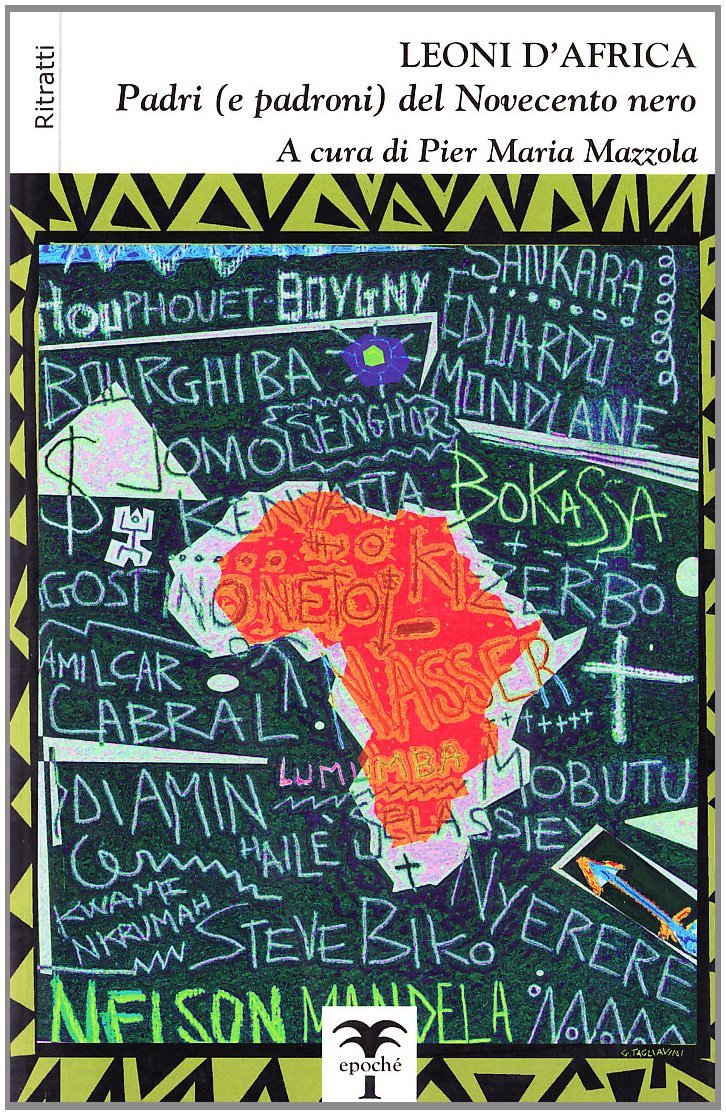 Ritratti
LEONI D'AFRICA
Padri (e padroni) del Novecento nero
A cura di Pier Maria Mazzola
HOUPHOUET-BOYGNY
SANKARA
EDUARDO
MONDLANE
BOURGHIBA
SENGHOR
JOMO
KENYATTA
BOKASSA
GOSTINO NETO
KIZERBO
AMILCAR
CABRAL
NASSER
LUMUMBA
MOBUTU
IDI AMIN
HAILÈ SELASSIE
KWAME
NKRUMAH
STEVE BIKO
NYERERE
NELSON MANDELA
G. TAGLIAVINI
epoché